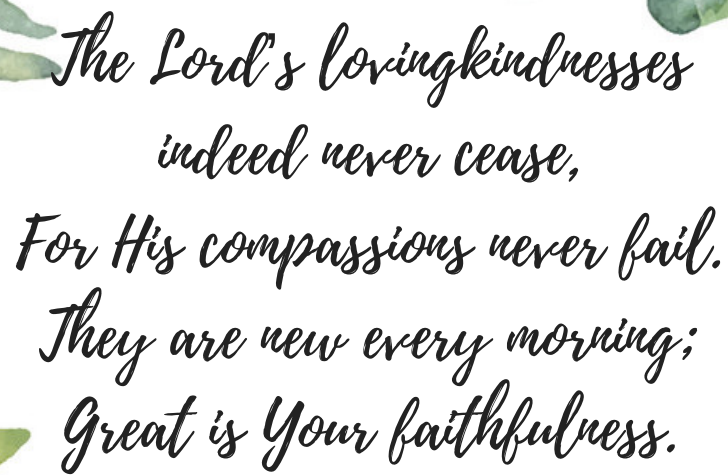 The Lord's lovingkindnesses
indeed never cease,
For His compassions never fail.
They are new every morning;
Great is Your faithfulness.